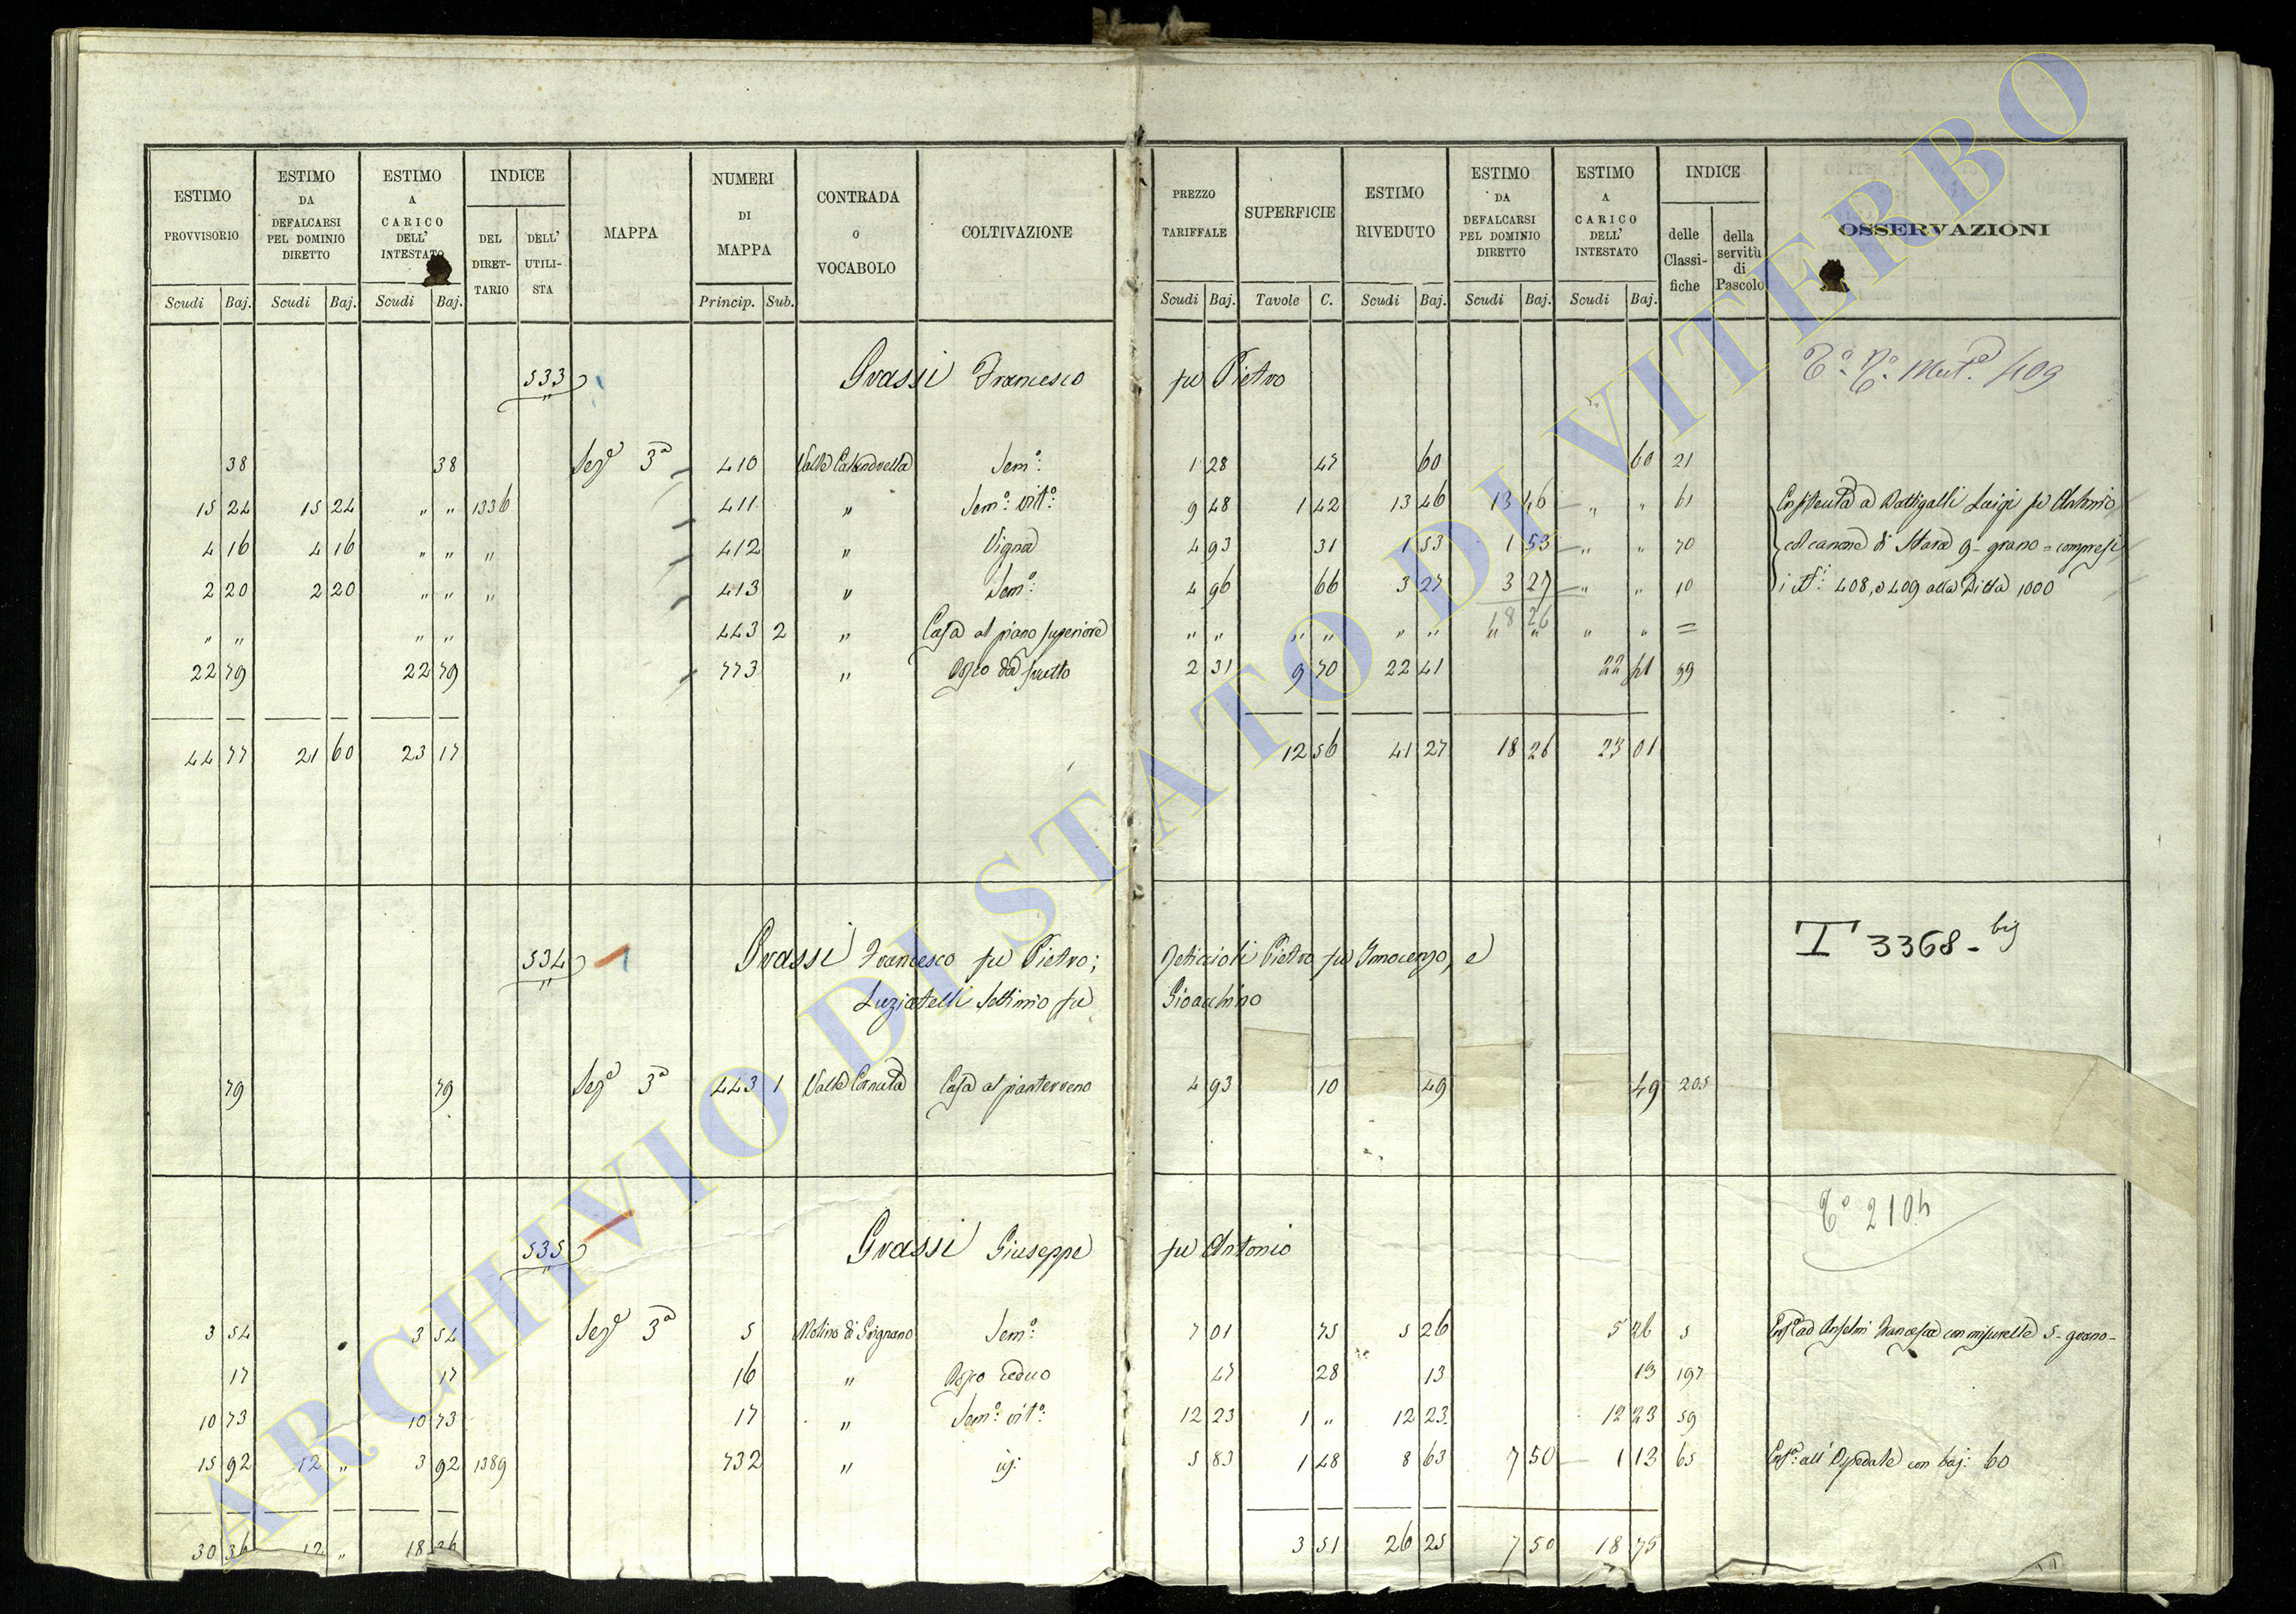 ESTIMO PROVVISORIO | ESTIMO DA DEFALCARSI PEL DOMINIO DIRETTO | ESTIMO A CARICO DELL' INTESTATO | INDICE | MAPPA | NUMERI DI MAPPA | CONTRADA O VOCABOLO | COLTIVAZIONE | PREZZO TARIFFALE | SUPERFICIE | ESTIMO RIVEDUTO | ESTIMO DA DEFALCARSI PEL DOMINIO DIRETTO | ESTIMO A CARICO DELL' INTESTATO | INDICE | OSSERVAZIONI
DEL DIRET-TARIO | DELL' UTILI-STA | delle Classi-fiche | della servitù di Pascolo
Scudi | Baj. | Scudi | Baj. | Scudi | Baj. | Princip. | Sub. | Scudi | Baj. | Tavole | C. | Scudi | Baj. | Scudi | Baj. | Scudi | Baj.
533 Grassi Francesco fu Pietro 409
38 | 38 | Seze 3a | 410 | Semo: | 1 28 | 47 | 60 | 60 | 21
15 24 | 15 24 | " " | 1336 | 411 | " | Semo: vito: | 9 48 | 1 42 | 13 46 | 13 46 | " " | 61 | Luigi fu Antonio
4 16 | 4 16 | " " | " | 412 | " | Vigna | 4 93 | 31 | 1 53 | 1 53 | " " | 70 | col canone di Stara 9 - grano = compresi
2 20 | 2 20 | " " | " | 413 | " | Semo: | 4 96 | 66 | 3 27 | 3 27 | " " | 10 | i Ni: 408, e 409 alla Ditta 1000
18 26
" " | " " | 443 2 | " | Casa al piano superiore | " " | " " | " " | " " | " " | =
22 79 | 22 79 | 773 | " | Bosco da frutto | 2 31 | 9 70 | 22 41 | 22 41 | 99
44 77 | 21 60 | 23 17 | 12 56 | 41 27 | 18 26 | 23 01
534 Grassi Francesco fu Pietro; Pietro fu Innocenzo, e T 3368 - bis
Luziatelli Settimio fu Gioacchino
79 | 79 | Seze 3a | 443 1 | Valle Cornuta | Casa al pianterreno | 4 93 | 10 | 49 | 49 | 205
535 Grassi Giuseppe fu Antonio To 2104
3 54 | 3 54 | Seze 3a | 5 | Molino di Grignano | Semo: | 7 01 | 75 | 5 26 | 5 26 | 5 | ad Anselmi Francesca con misurelle 5 - grano -
17 | 17 | 16 | " | Bosco ceduo | 47 | 28 | 13 | 13 | 197
10 73 | 10 73 | 17 | " | Semo: vito: | 12 23 | 1 " | 12 23 | 12 23 | 59
15 92 | 12 " | 3 92 | 1389 | 732 | " | 5 83 | 1 48 | 8 63 | 7 50 | 1 13 | 65 | all'Ospedale con baj: 60
30 36 | 12 " | 18 36 | 3 51 | 26 25 | 7 50 | 18 75
ARCHIVIO DI STATO DI VITERBO